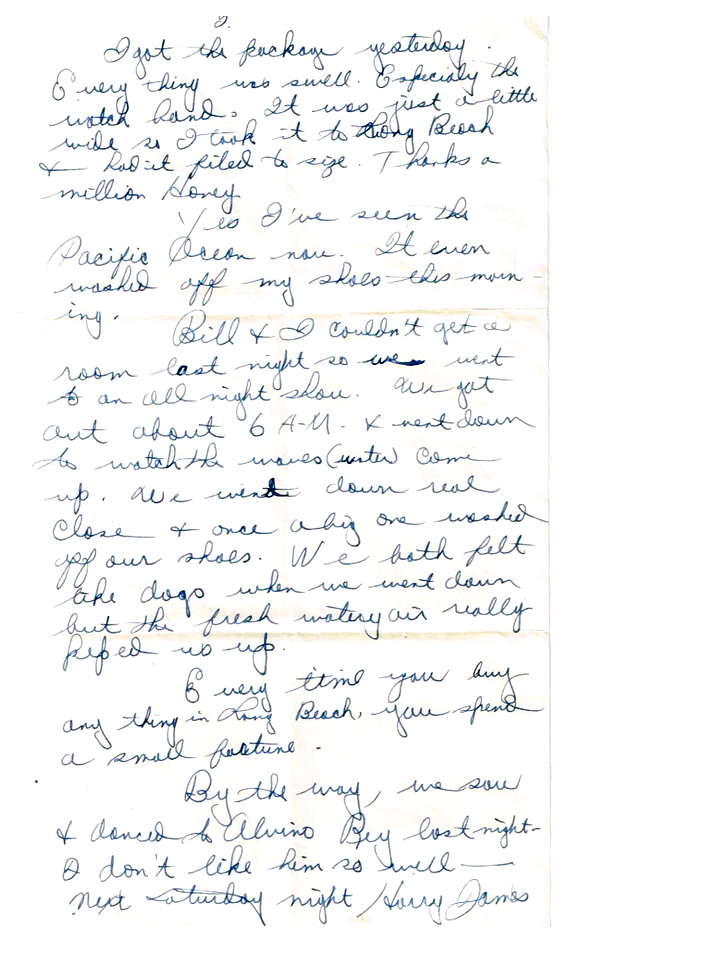 2.
I got the package yesterday.
Every thing was swell. Especialy the
watch band. It was just a little
wide so I took it to Long Beach
& had it filed to size. Thanks a
million Honey
Yes I've seen the
Pacific Ocean now. It even
washed off my shoes this morn-
ing.
Bill & I couldn't get a
room last night so we went
to an all night show. We got
out about 6 A-M. & went down
to watch the waves (water) come
up. We went down real
close & once a big one washed
off our shoes. We both felt
like dogs when we went down
but the fresh watery air really
peped us up.
Every time you buy
any thing in Long Beach, you spend
a small foetune.
By the way, we saw
& danced to Alvino Rey last night-
I don't like him so well—
next Saturday night Harry James